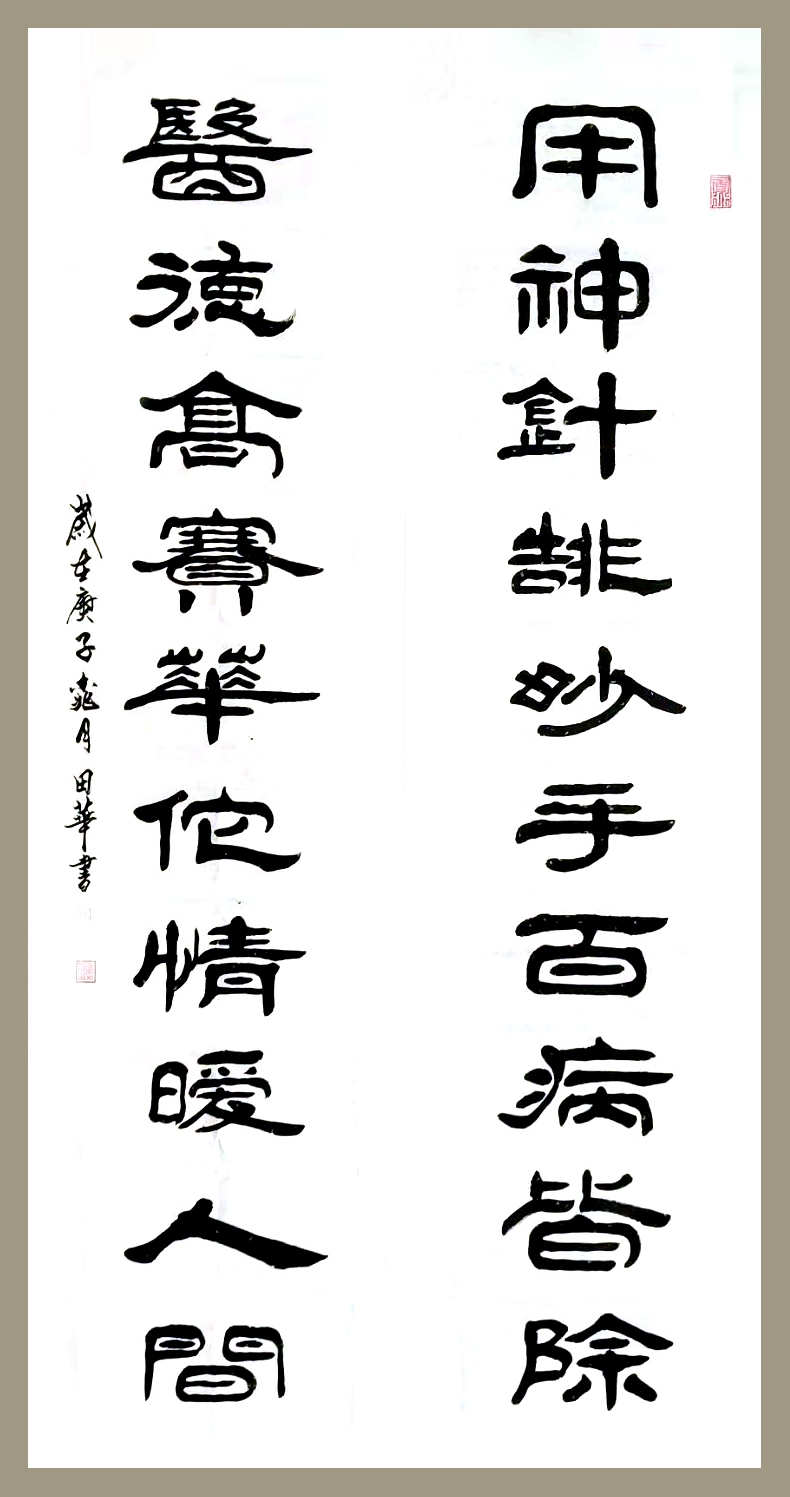 用神針靠妙手百病皆除
醫德髙賽華佗情暖人間
歲在庚子月田華書